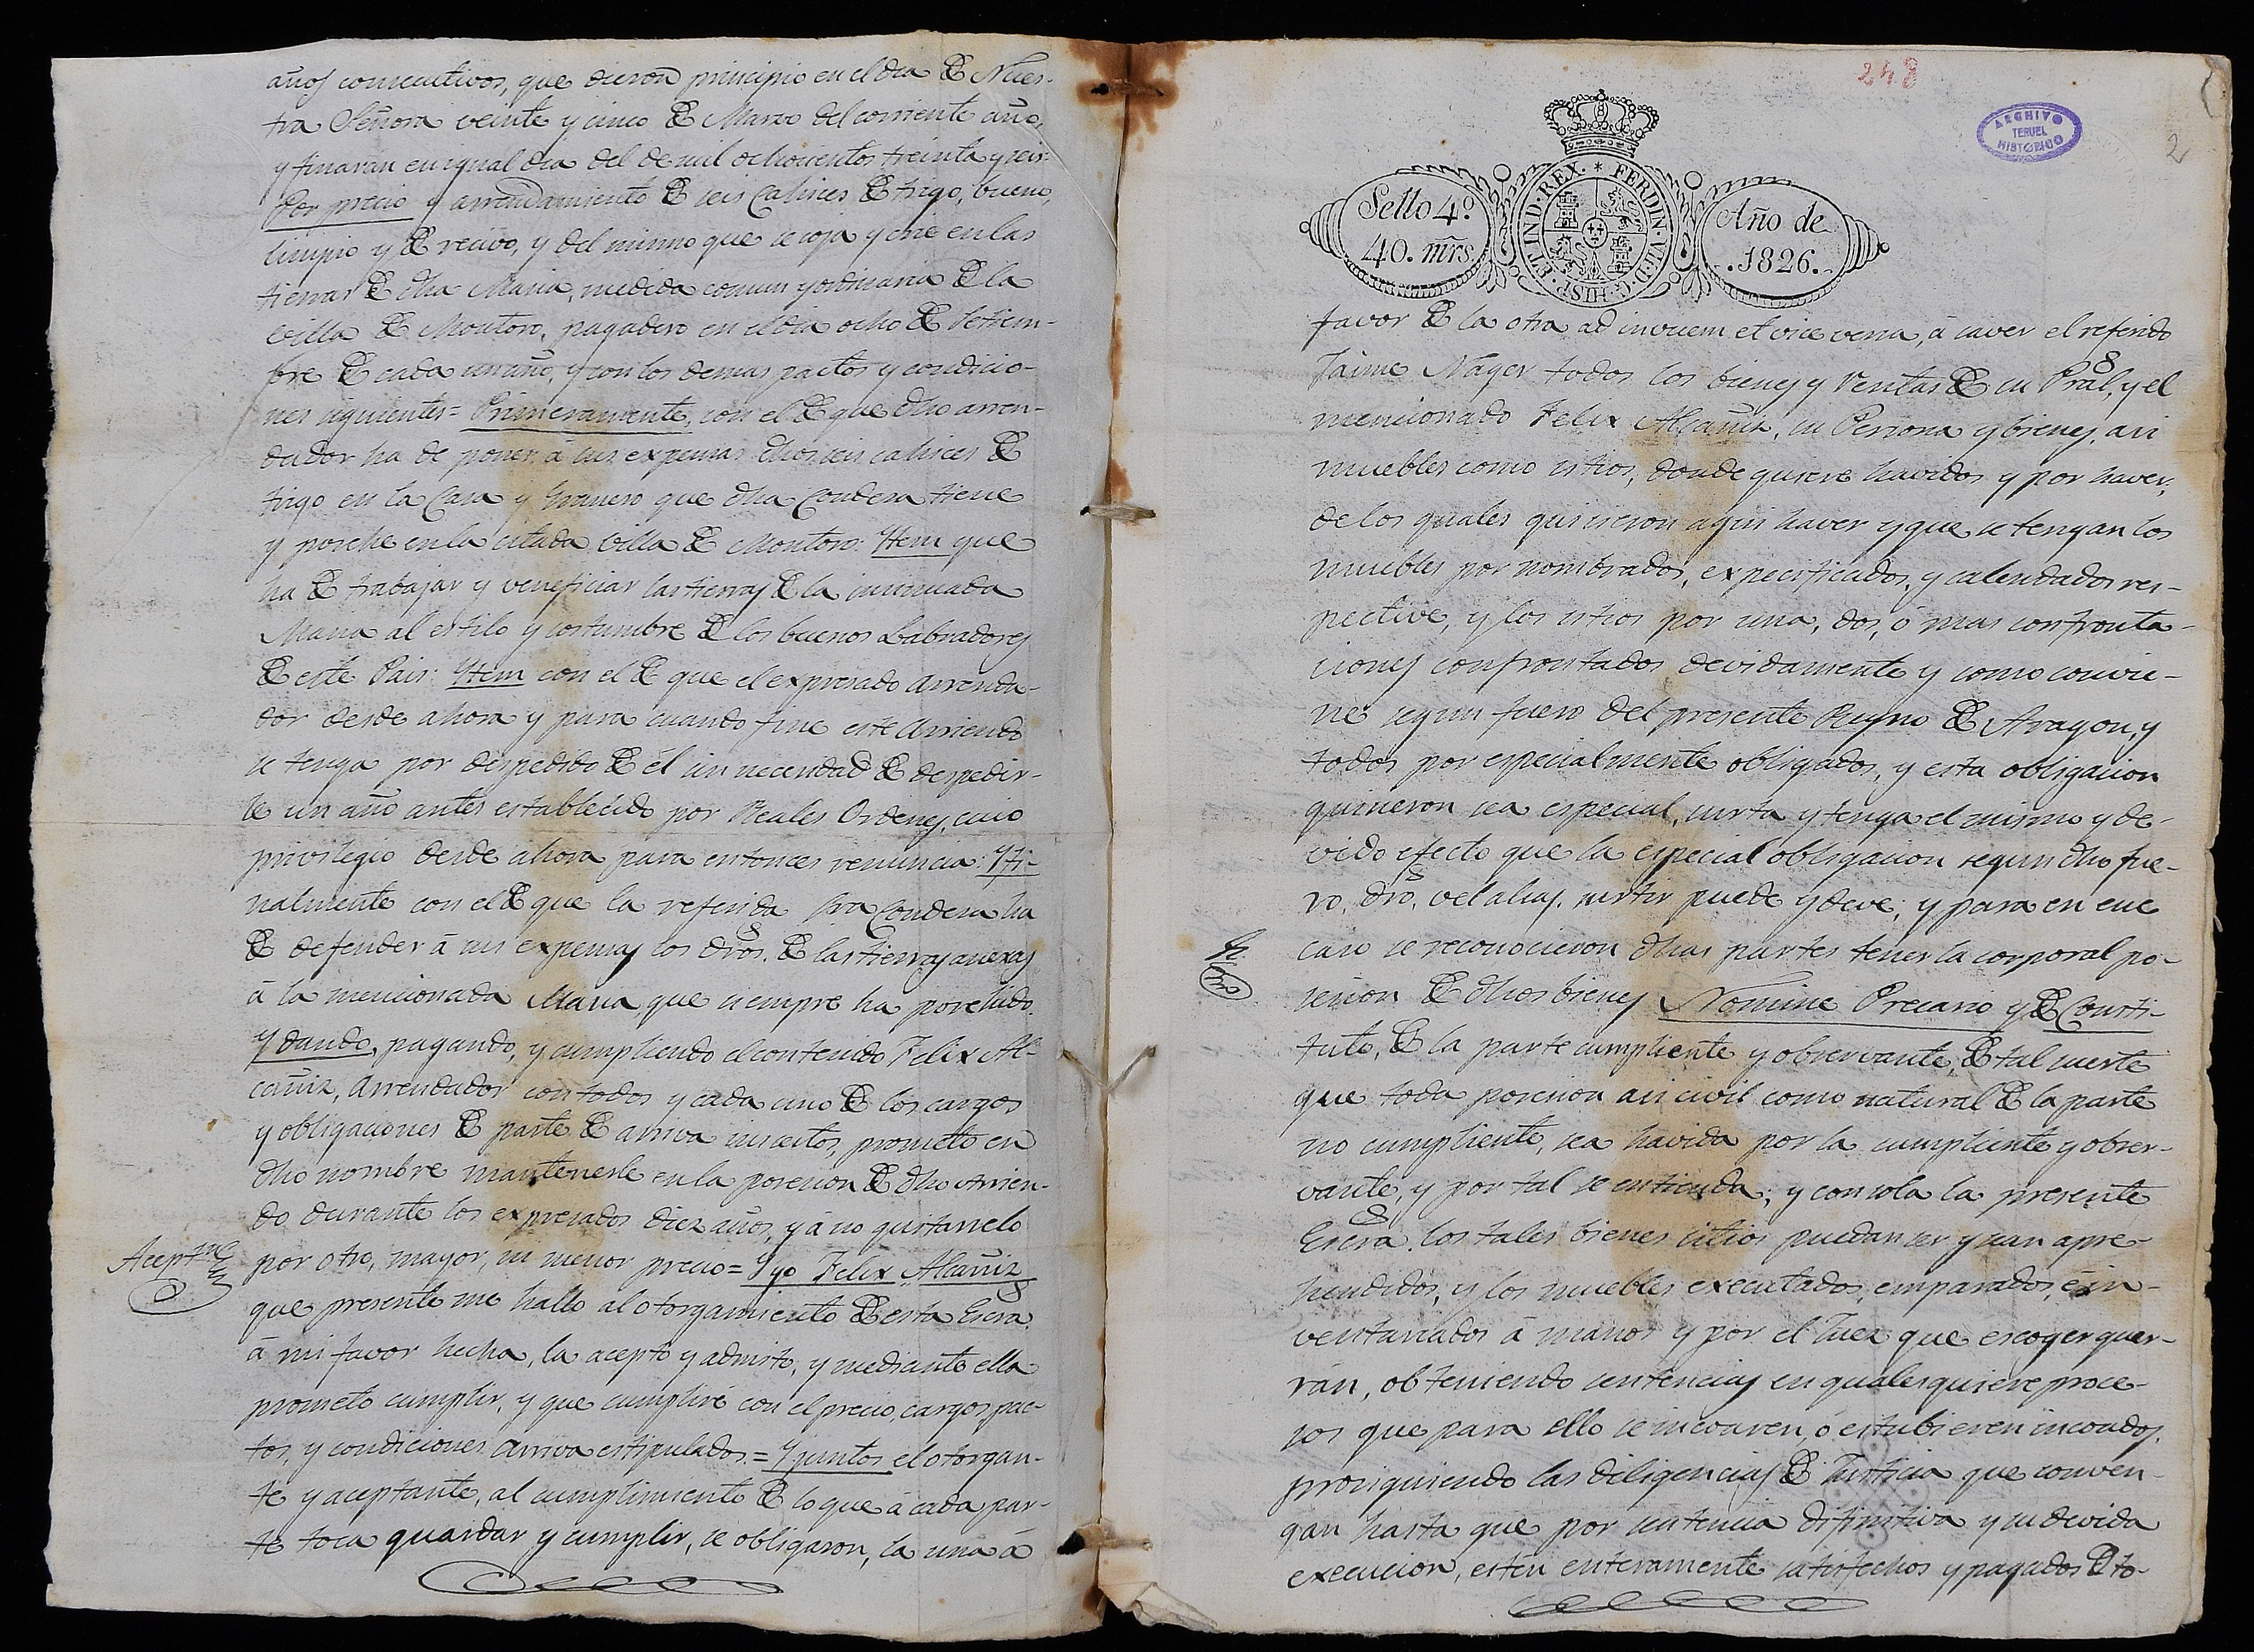 años consecutivos, que dieron principio en el dia de Nues-
tra Señora veinte y cinco de Marzo del corriente año,
y finarán en igual dia del de mil ochocientos treinta y seis:
Por precio y arrendamiento de seis Cahices de trigo, bueno,
limpio y de recivo, y del mismo que se coja y crie en las
tierras de dha Masia, medida comun y ordinaria de la
Villa de Montoro, pagadero en el dia ocho de Setiem-
bre de cada un año, y con los demas pactos y condicio-
nes siguientes = Primeramente, con el de que dho arren-
dador ha de poner á sus expensas dhos seis cahices de
trigo en la Casa y Granero que dha Condesa tiene
y poséhe en la citada Villa de Montoro: Ytem que
ha de trabajar y veneficiar las tierras de la insinuada
Masia al estilo y costumbre de los buenos Labradores
de este Pais: Ytem con el de que el expresado Arrenda-
dor desde ahora y para cuando fine este Arriendo
se tenga por despedido de él sin necesidad de despedir-
le un año antes establecido por Reales Ordenes, cuio
privilegio desde ahora para entonces renuncia: Y fi-
nalmente con el de que la referida Sra Condesa ha
de defender á sus expensas los dros. de las tierras anexas
á la mencionada Masia, que siempre ha posehido.
Y dando, pagando, y cumpliendo el contenido Felix Al-
cañiz, Arrendador con todos y cada uno de los cargos
y obligaciones de parte de arriva insertos, prometo en
dho nombre mantenerle en la posesion de dho Arrien-
do durante los expresados diez años, y á no quitarselo
Acept.ne
por otro, mayor, ni menor precio = Y yo Felix Alcañiz
que presente me hallo al otorgamiento de esta Escra.
á mi favor hecha, la acepto y admito, y mediante ella
prometo cumplir, y que cumpliré con el precio, cargos pac-
tos, y condiciones arriva estipulados. = Y juntos el otorgan-
te y aceptante, al cumplimiento de lo que á cada par-
te toca guardar y cumplir, se obligaron, la una á
248
ARCHIVO
TERUEL
HISTORICO
2
Sello 4º
40. mrs.
FERDIN. VII. D. G. HISP. ET IND. REX.
Año de
.1826.
favor de la otra ad invicem et vice versa, á saver el referido
Jaime Náger todos los bienes y Rentas de su Pral, y el
mencionado Felix Alcañiz, su Persona y bienes, asi
muebles como sitios, donde quiere havidos y por haver,
de los quales quisieron aqui haver y que se tengan los
muebles por nombrados, expecificados, y calendados res-
pective, y los sitios por una, dos, ó mas confronta-
ciones confrontados devidamente y como convie-
ne segun fuero del presente Reyno de Aragon, y
todos por especialmente obligados, y esta obligacion
quisieron sea especial, surta y tenga el mismo y de-
vido efecto que la especial obligacion segun dho fue-
ro, dro, vel alias, surtir puede y deve; y para en ese
caso se reconocieron dhas partes tener la corporal po-
sesion de dhos bienes Nomine Precario y de Consti-
tuto, de la parte cumpliente y observante, de tal suerte
que toda posesion asi civil como natural de la parte
no cumpliente, sea havida por la cumpliente y obser-
vante, y por tal se entienda; y con sola la presente
Escra. los tales bienes sitios puedan ser y sean apre-
hendidos, y los muebles executados, emparados, é in-
ventariados á manos y por el Juez que escoger quer-
rán, obteniendo sentencias en qualesquiere proce-
sos que para ello se incoaren, ó estubieren incoados,
prosiguiendo las diligencias de Justicia que conven-
gan hasta que por sentencia difinitiva y su devida
execucion, estén enteramente satisfechos y pagados de to-